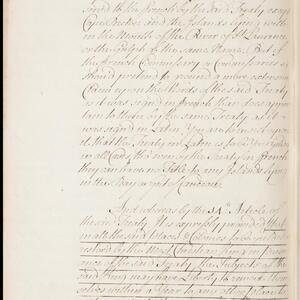 to the French by the said Treaty except
Cape Breton and the Islands lying with
in the Mouth of the River of St. Lawrence
or the Gulph of the same Name. But if
the French Commissary or Commissaries
should pretend to ground a more extensive
Claim upon the Words of the said Treaty
as it was signed in French than does apper
tain to them by the same Treaty as it
was signed in Latin, You are to insist upon
it, that the Treaty in Latin is to be
in all Cases, tho' even by the Treaty in French
they can have no Title to any Islands lying
in the Bay or off
And whereas by the 14th Article of
the said Treaty It is expressly provided that
in all the said Places & Colonies to be
restored by the Most Christian King in
of the said Treaty the Subjects of the
said King may have Liberty to remove Them
selves within a Year to any other place